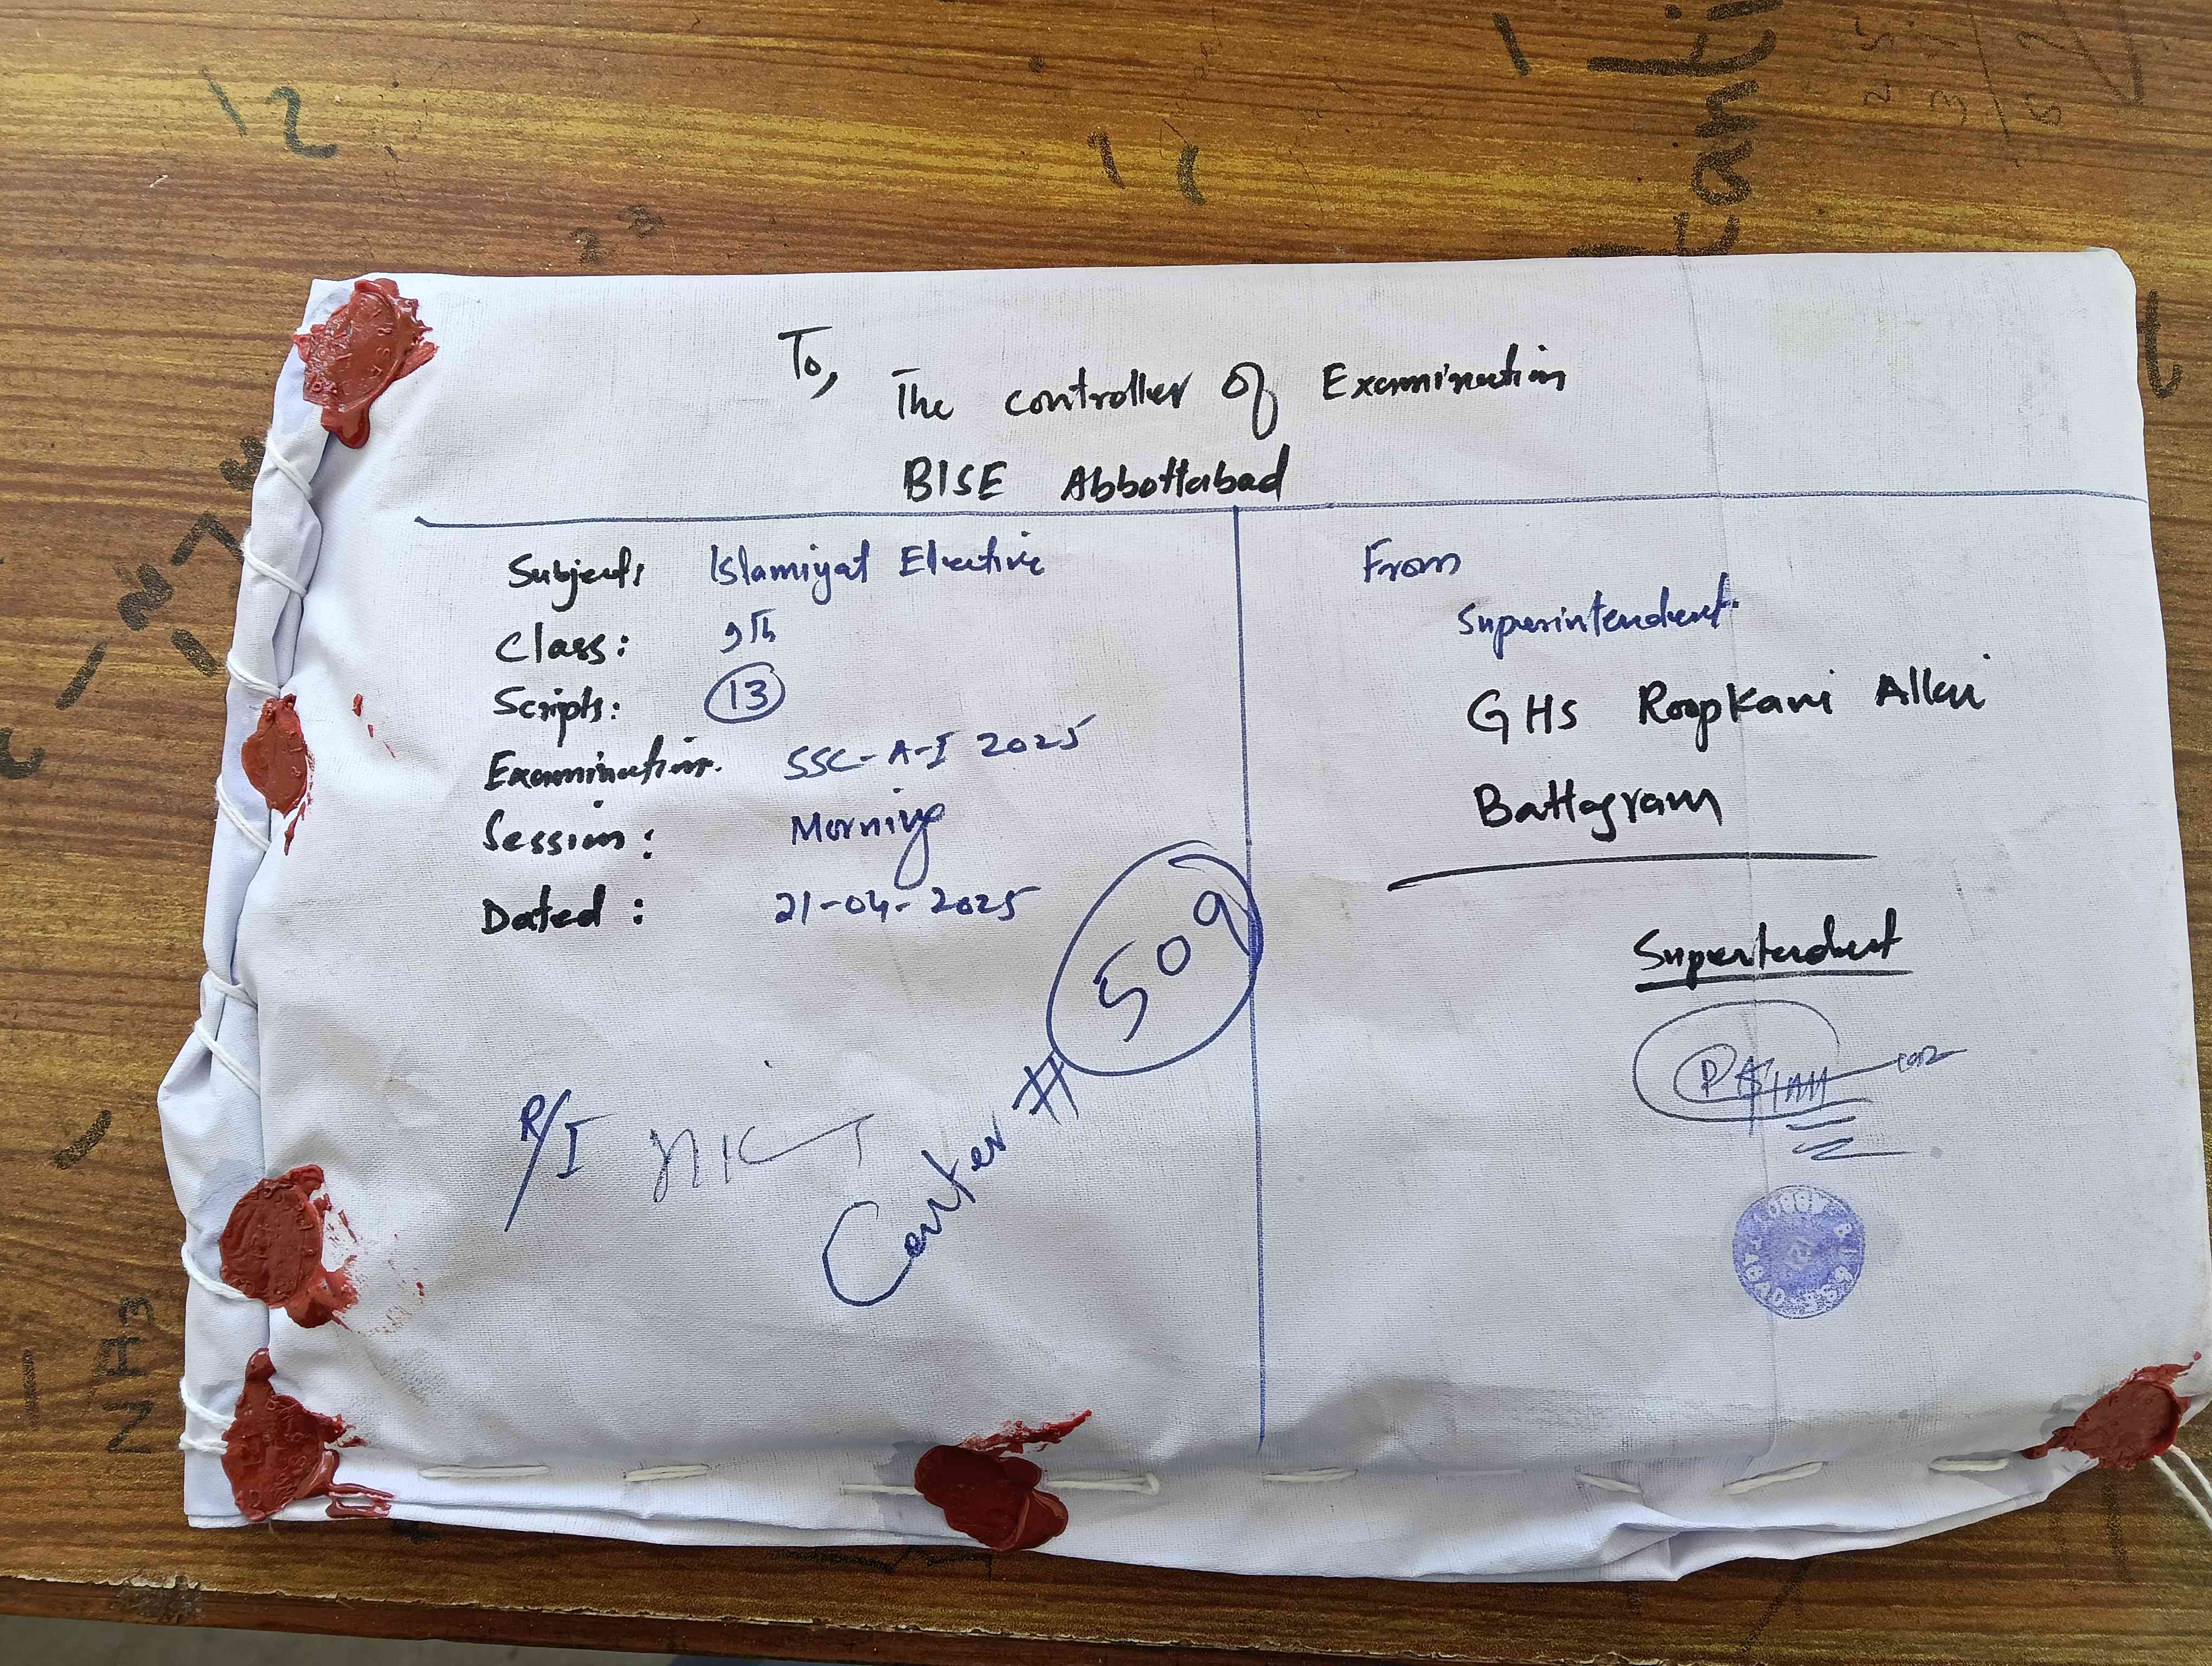 To,
The controller of Examination
BISE Abbottabad
Subject: Islamiyat Elective
Class: 9th
Scripts: 13
Examination. SSC-A-I 2025
Session: Morning
Dated: 21-04-2025
R/I
Center # 509
From
Superintendent
GHS Roopkani Allai
Battagram
Supertendent
12
11
NH3